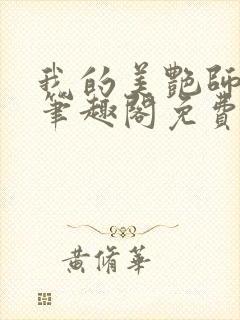 我的美艷師
筆趣閣免費
黃脩華